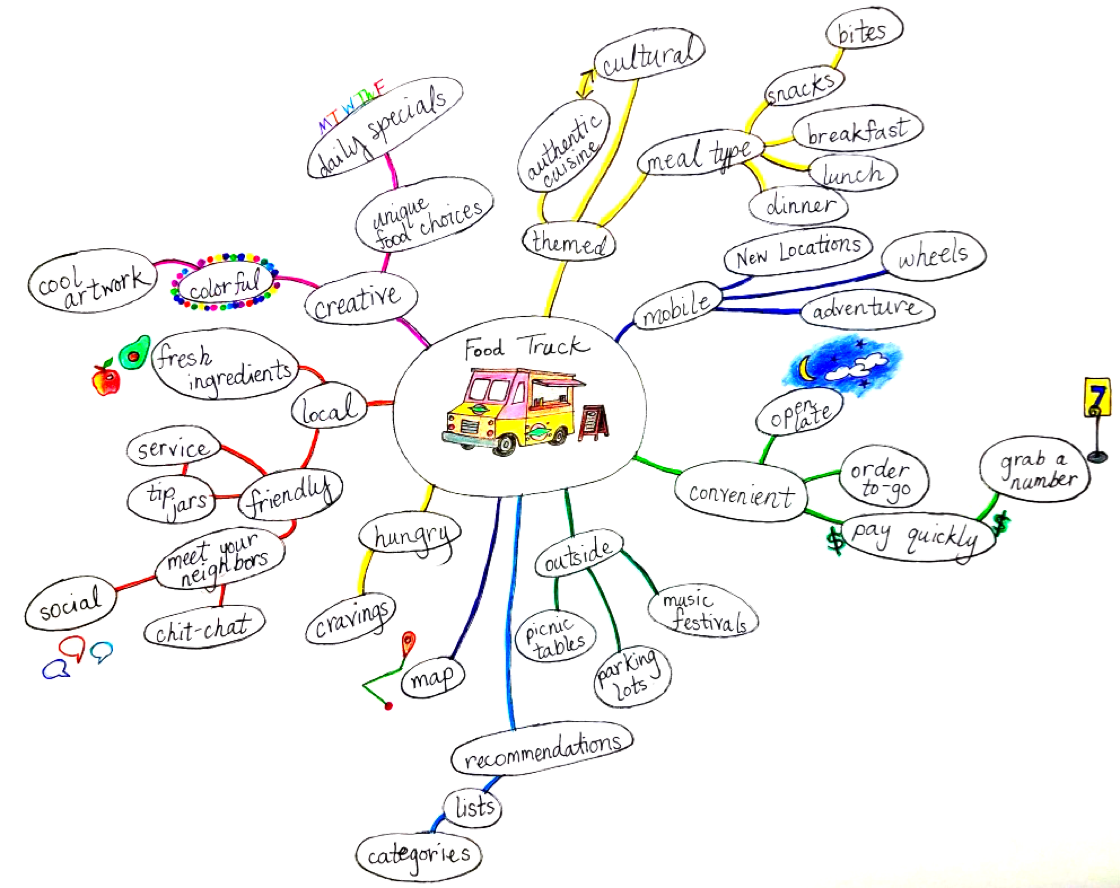 Food Truck
themed
authentic
cuisine
cultural
meal type
snacks
bites
breakfast
lunch
dinner
mobile
New Locations
wheels
adventure
convenient
open
late
order
to-go
pay quickly
$
$
grab a
number
7
outside
music
festivals
parking
lots
picnic
tables
recommendations
lists
categories
map
hungry
cravings
local
fresh
ingredients
friendly
service
tip
jars
meet your
neighbors
social
chit-chat
creative
colorful
cool
artwork
unique
food choices
daily specials
M T W Th F